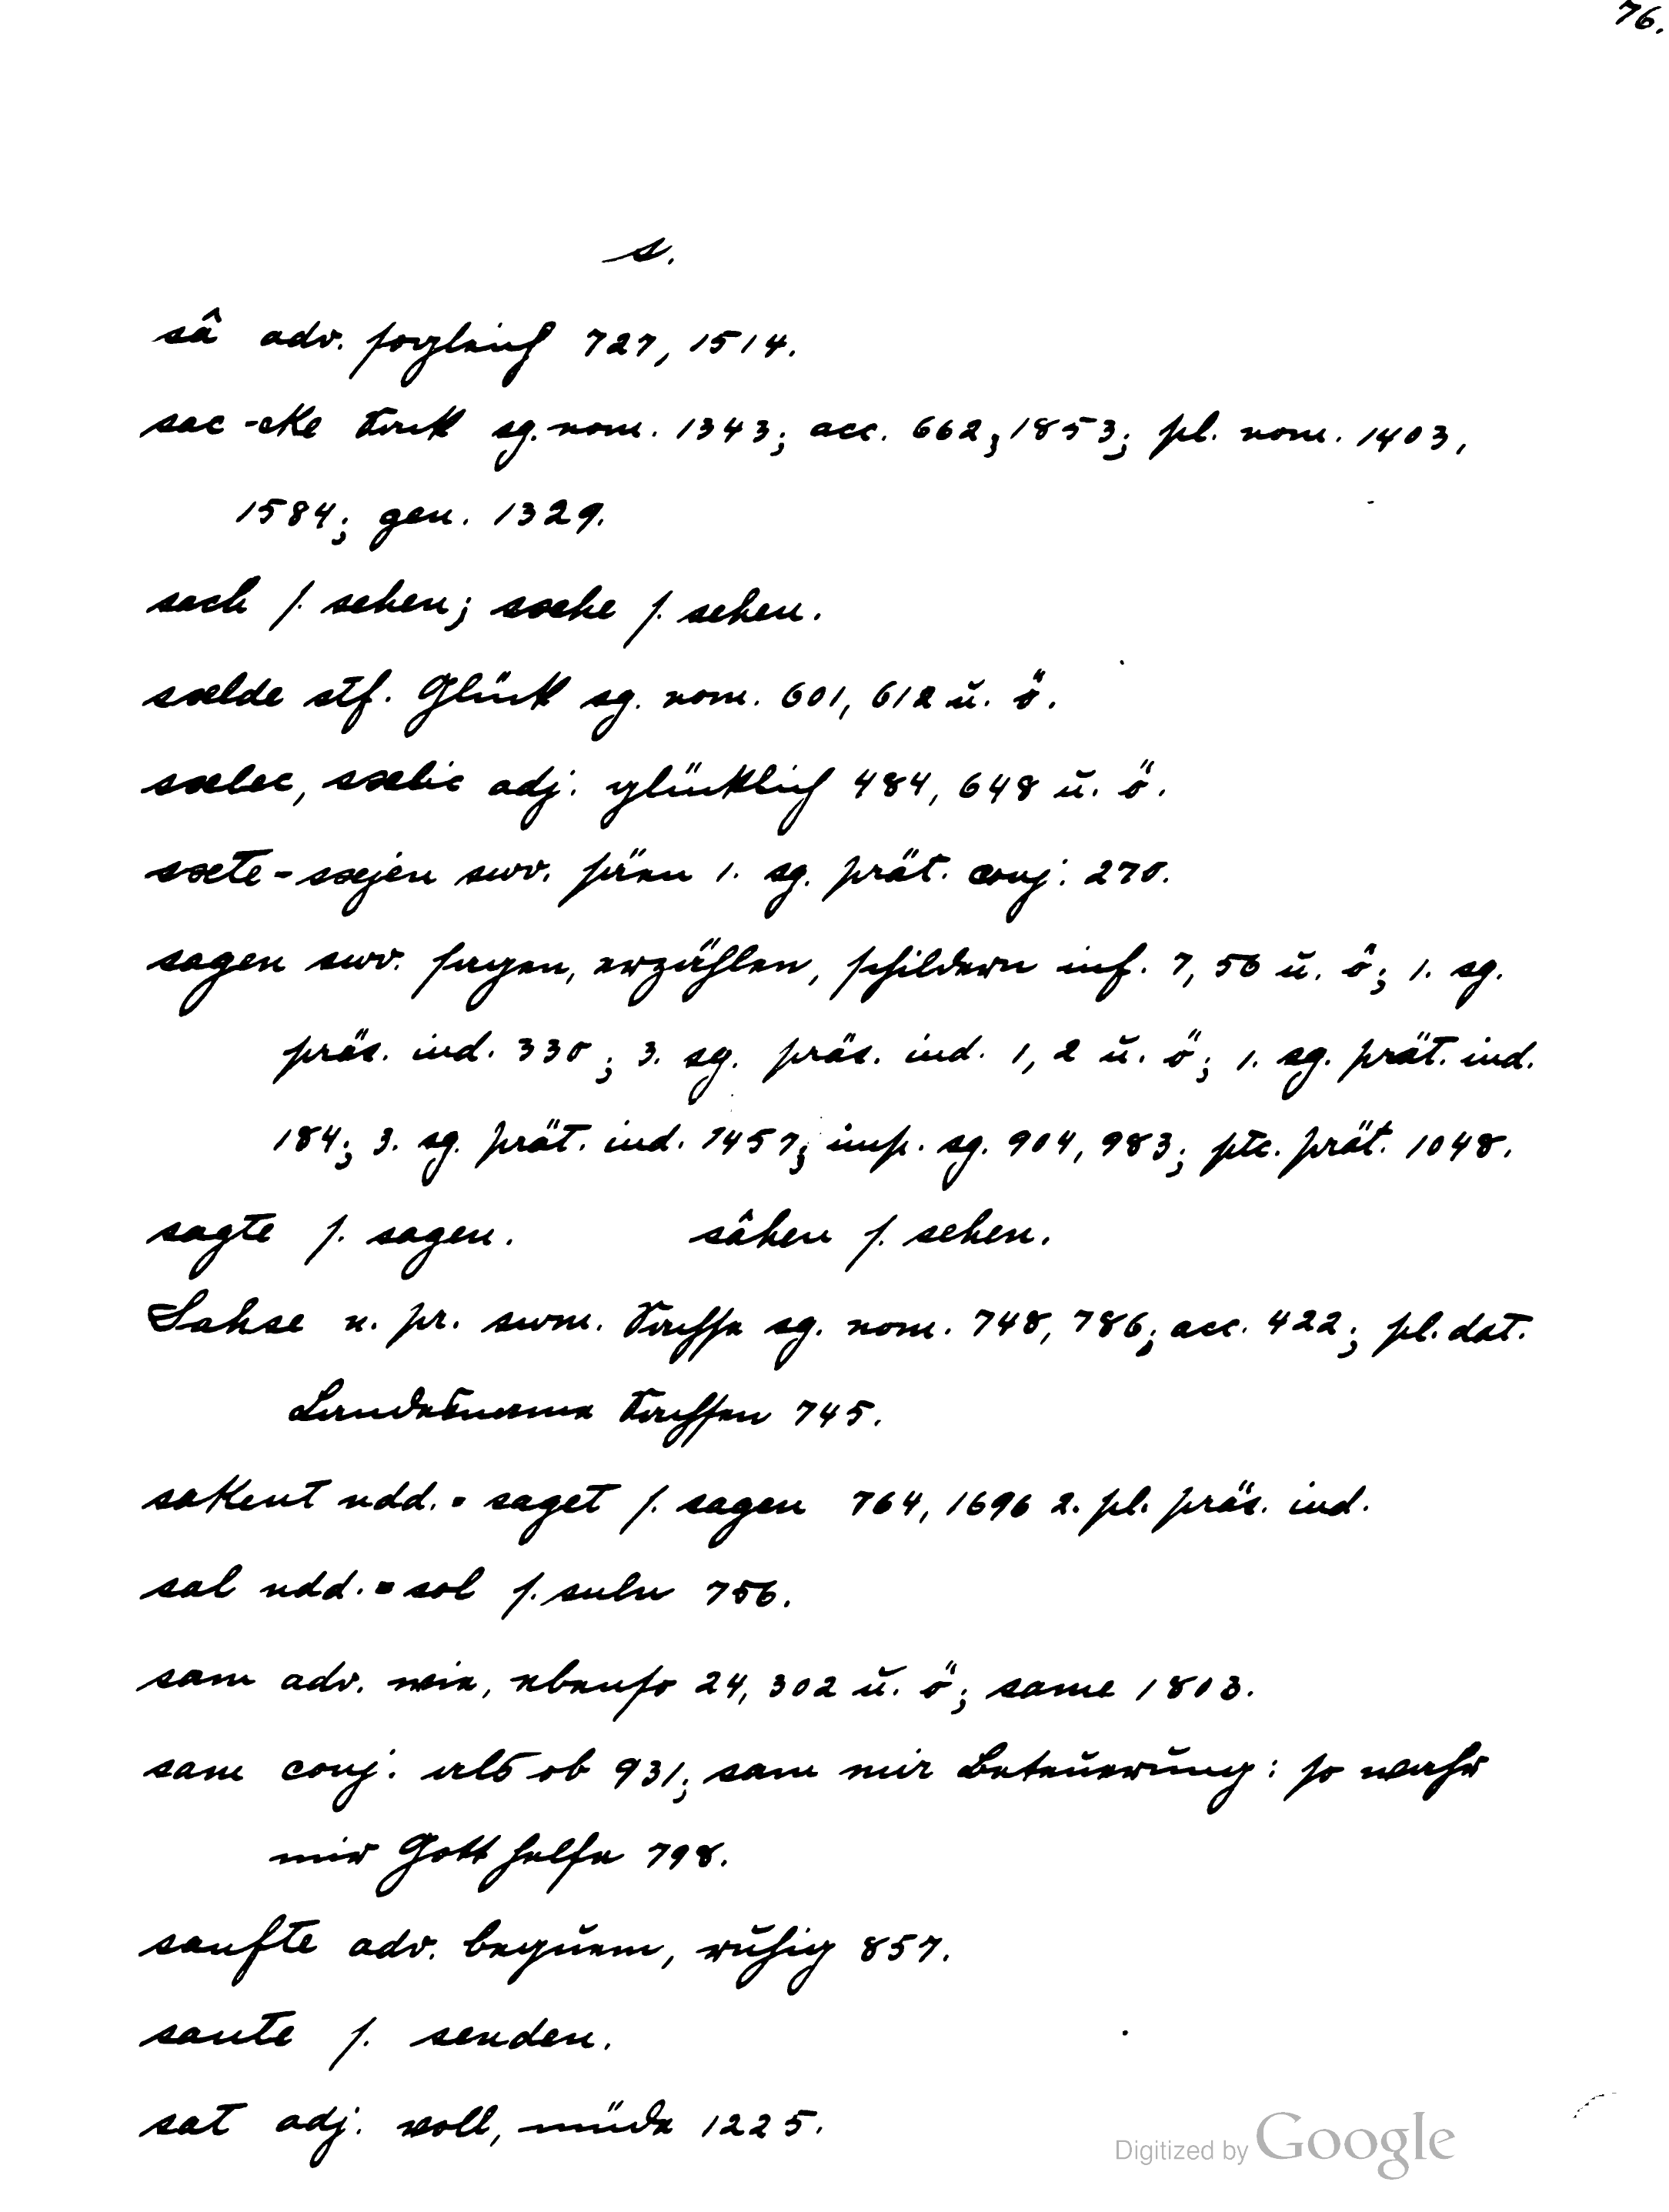 76.
s.
sâ adv. sogleich 727, 1514.
sac -cke Sack sg. nom. 1343; acc. 662, 1853; pl. nom. 1403,
1584; gen. 1329.
sach s. sehen; sæhe s. sehen.
sælde stf. Glück sg. nom. 601, 612 u. ö.
sælec, sælic adj. glücklich 484, 648 u. ö.
sæte - sæjen swv. säen 1. sg. prät. conj. 270.
sagen swv. sagen, erzählen, schildern inf. 7, 56 u. ö; 1. sg.
präs. ind. 330; 3. sg. präs. ind. 1, 2 u. ö; 1. sg. prät. ind.
184; 3. sg. prät. ind. 1457; imp. sg. 904, 983; ptc. prät. 1048.
sagte s. sagen. sâhen s. sehen.
Sahse n. pr. swm. Sachse sg. nom. 748, 786; acc. 422; pl. dat.
Landesname Sachsen 745.
sakent ndd. = saget s. sagen 764, 1696 2. pl. präs. ind.
sal ndd. = sol s. suln 756.
sam adv. wie, ebenso 24, 302 u. ö; same 1803.
sam conj. als ob 931; sam mir Beteuerung: so wahr
mir Gott helfe 798.
sanfte adv. bequem, ruhig 857.
sante s. senden.
sat adj. voll, müde 1225.
Digitized by Google